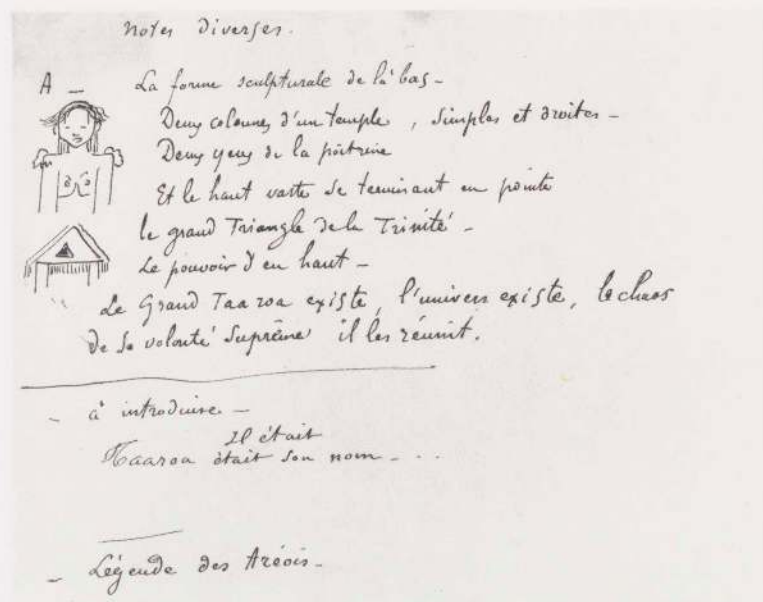 Notes diverses.
A — La forme sculpturale de là bas —
Deux colonnes d'un temple, simples et droites —
Deux yeux de la poitrine
Et le haut vaste se terminant en pointe
le grand Triangle de la Trinité —
Le pouvoir d'en haut —
Le Grand Taaroa existe, l'univers existe, le chaos
de sa volonté suprême il les réunit.
— à introduire —
Il était
Taaroa était son nom — . .
— Légende des Aréois —